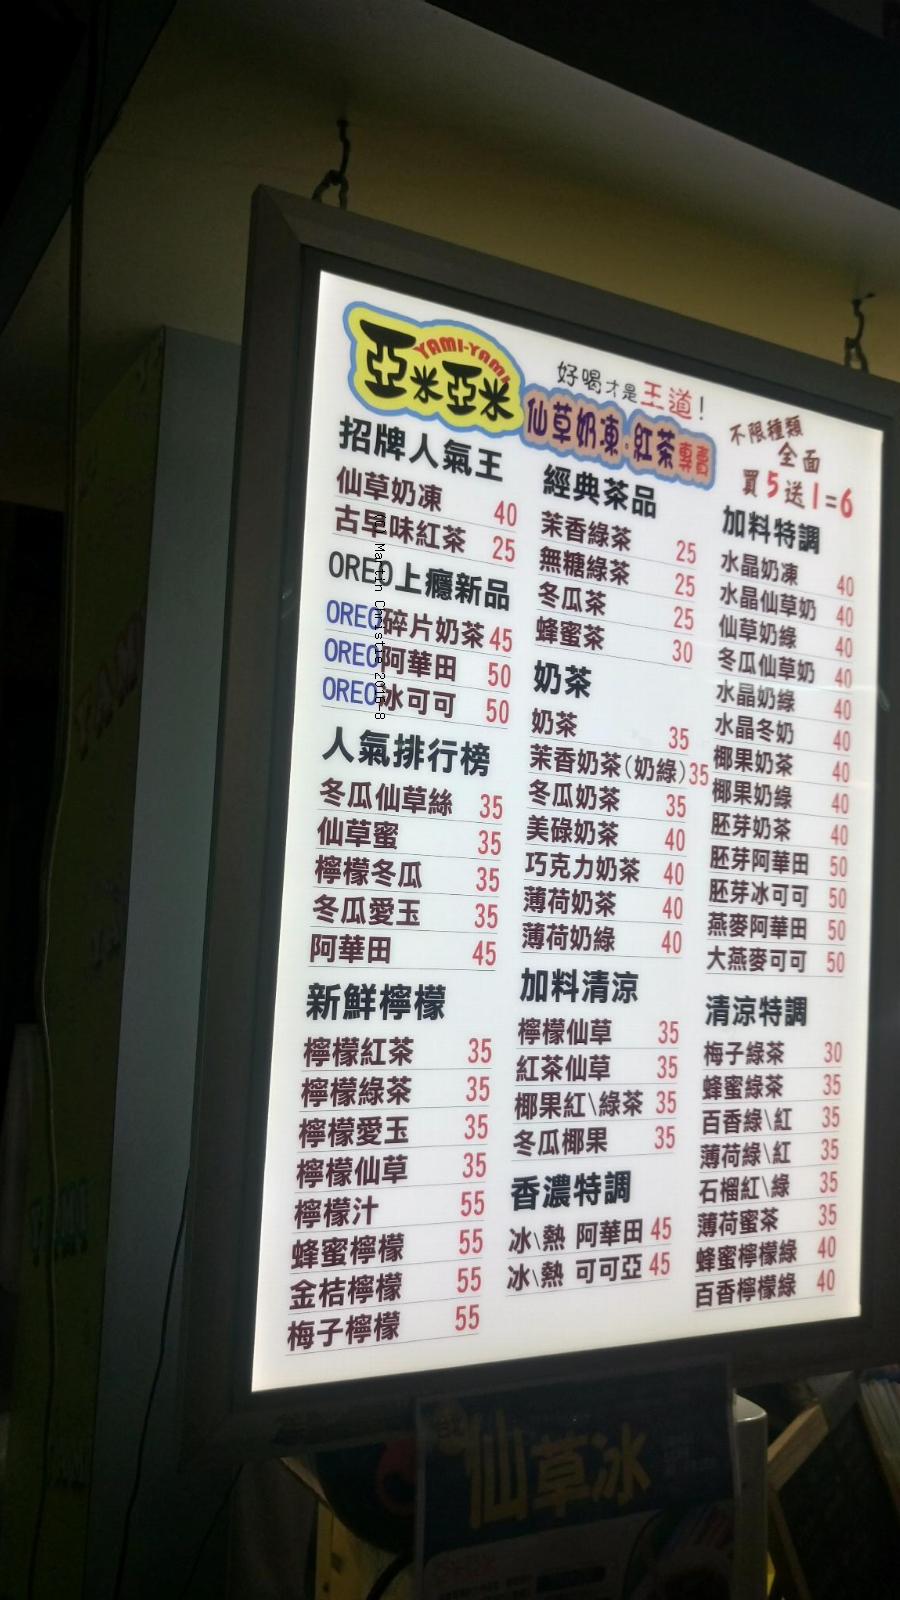 亞米亞米
YAMI-YAMI
好喝才是王道!
仙草奶凍·紅茶專賣
不限種類
全面
買5送1=6
招牌人氣王
仙草奶凍 40
古早味紅茶 25
OREO上癮新品
OREO碎片奶茶 45
OREO阿華田 50
OREO冰可可 50
人氣排行榜
冬瓜仙草絲 35
仙草蜜 35
檸檬冬瓜 35
冬瓜愛玉 35
阿華田 45
新鮮檸檬
檸檬紅茶 35
檸檬綠茶 35
檸檬愛玉 35
檸檬仙草 35
檸檬汁 55
蜂蜜檸檬 55
金桔檸檬 55
梅子檸檬 55
經典茶品
茉香綠茶 25
無糖綠茶 25
冬瓜茶 25
蜂蜜茶 30
奶茶
奶茶 35
茉香奶茶(奶綠) 35
冬瓜奶茶 35
美碌奶茶 40
巧克力奶茶 40
薄荷奶茶 40
薄荷奶綠 40
加料清涼
檸檬仙草 35
紅茶仙草 35
椰果紅\綠茶 35
冬瓜椰果 35
香濃特調
冰\熱 阿華田 45
冰\熱 可可亞 45
加料特調
水晶奶凍 40
水晶仙草奶 40
仙草奶綠 40
冬瓜仙草奶 40
水晶奶綠 40
水晶冬奶 40
椰果奶茶 40
椰果奶綠 40
胚芽奶茶 40
胚芽阿華田 50
胚芽冰可可 50
燕麥阿華田 50
大燕麥可可 50
清涼特調
梅子綠茶 30
蜂蜜綠茶 35
百香綠\紅 35
薄荷綠\紅 35
石榴紅\綠 35
薄荷蜜茶 35
蜂蜜檸檬綠 40
百香檸檬綠 40
仙草冰
Martin Christie 2015-8